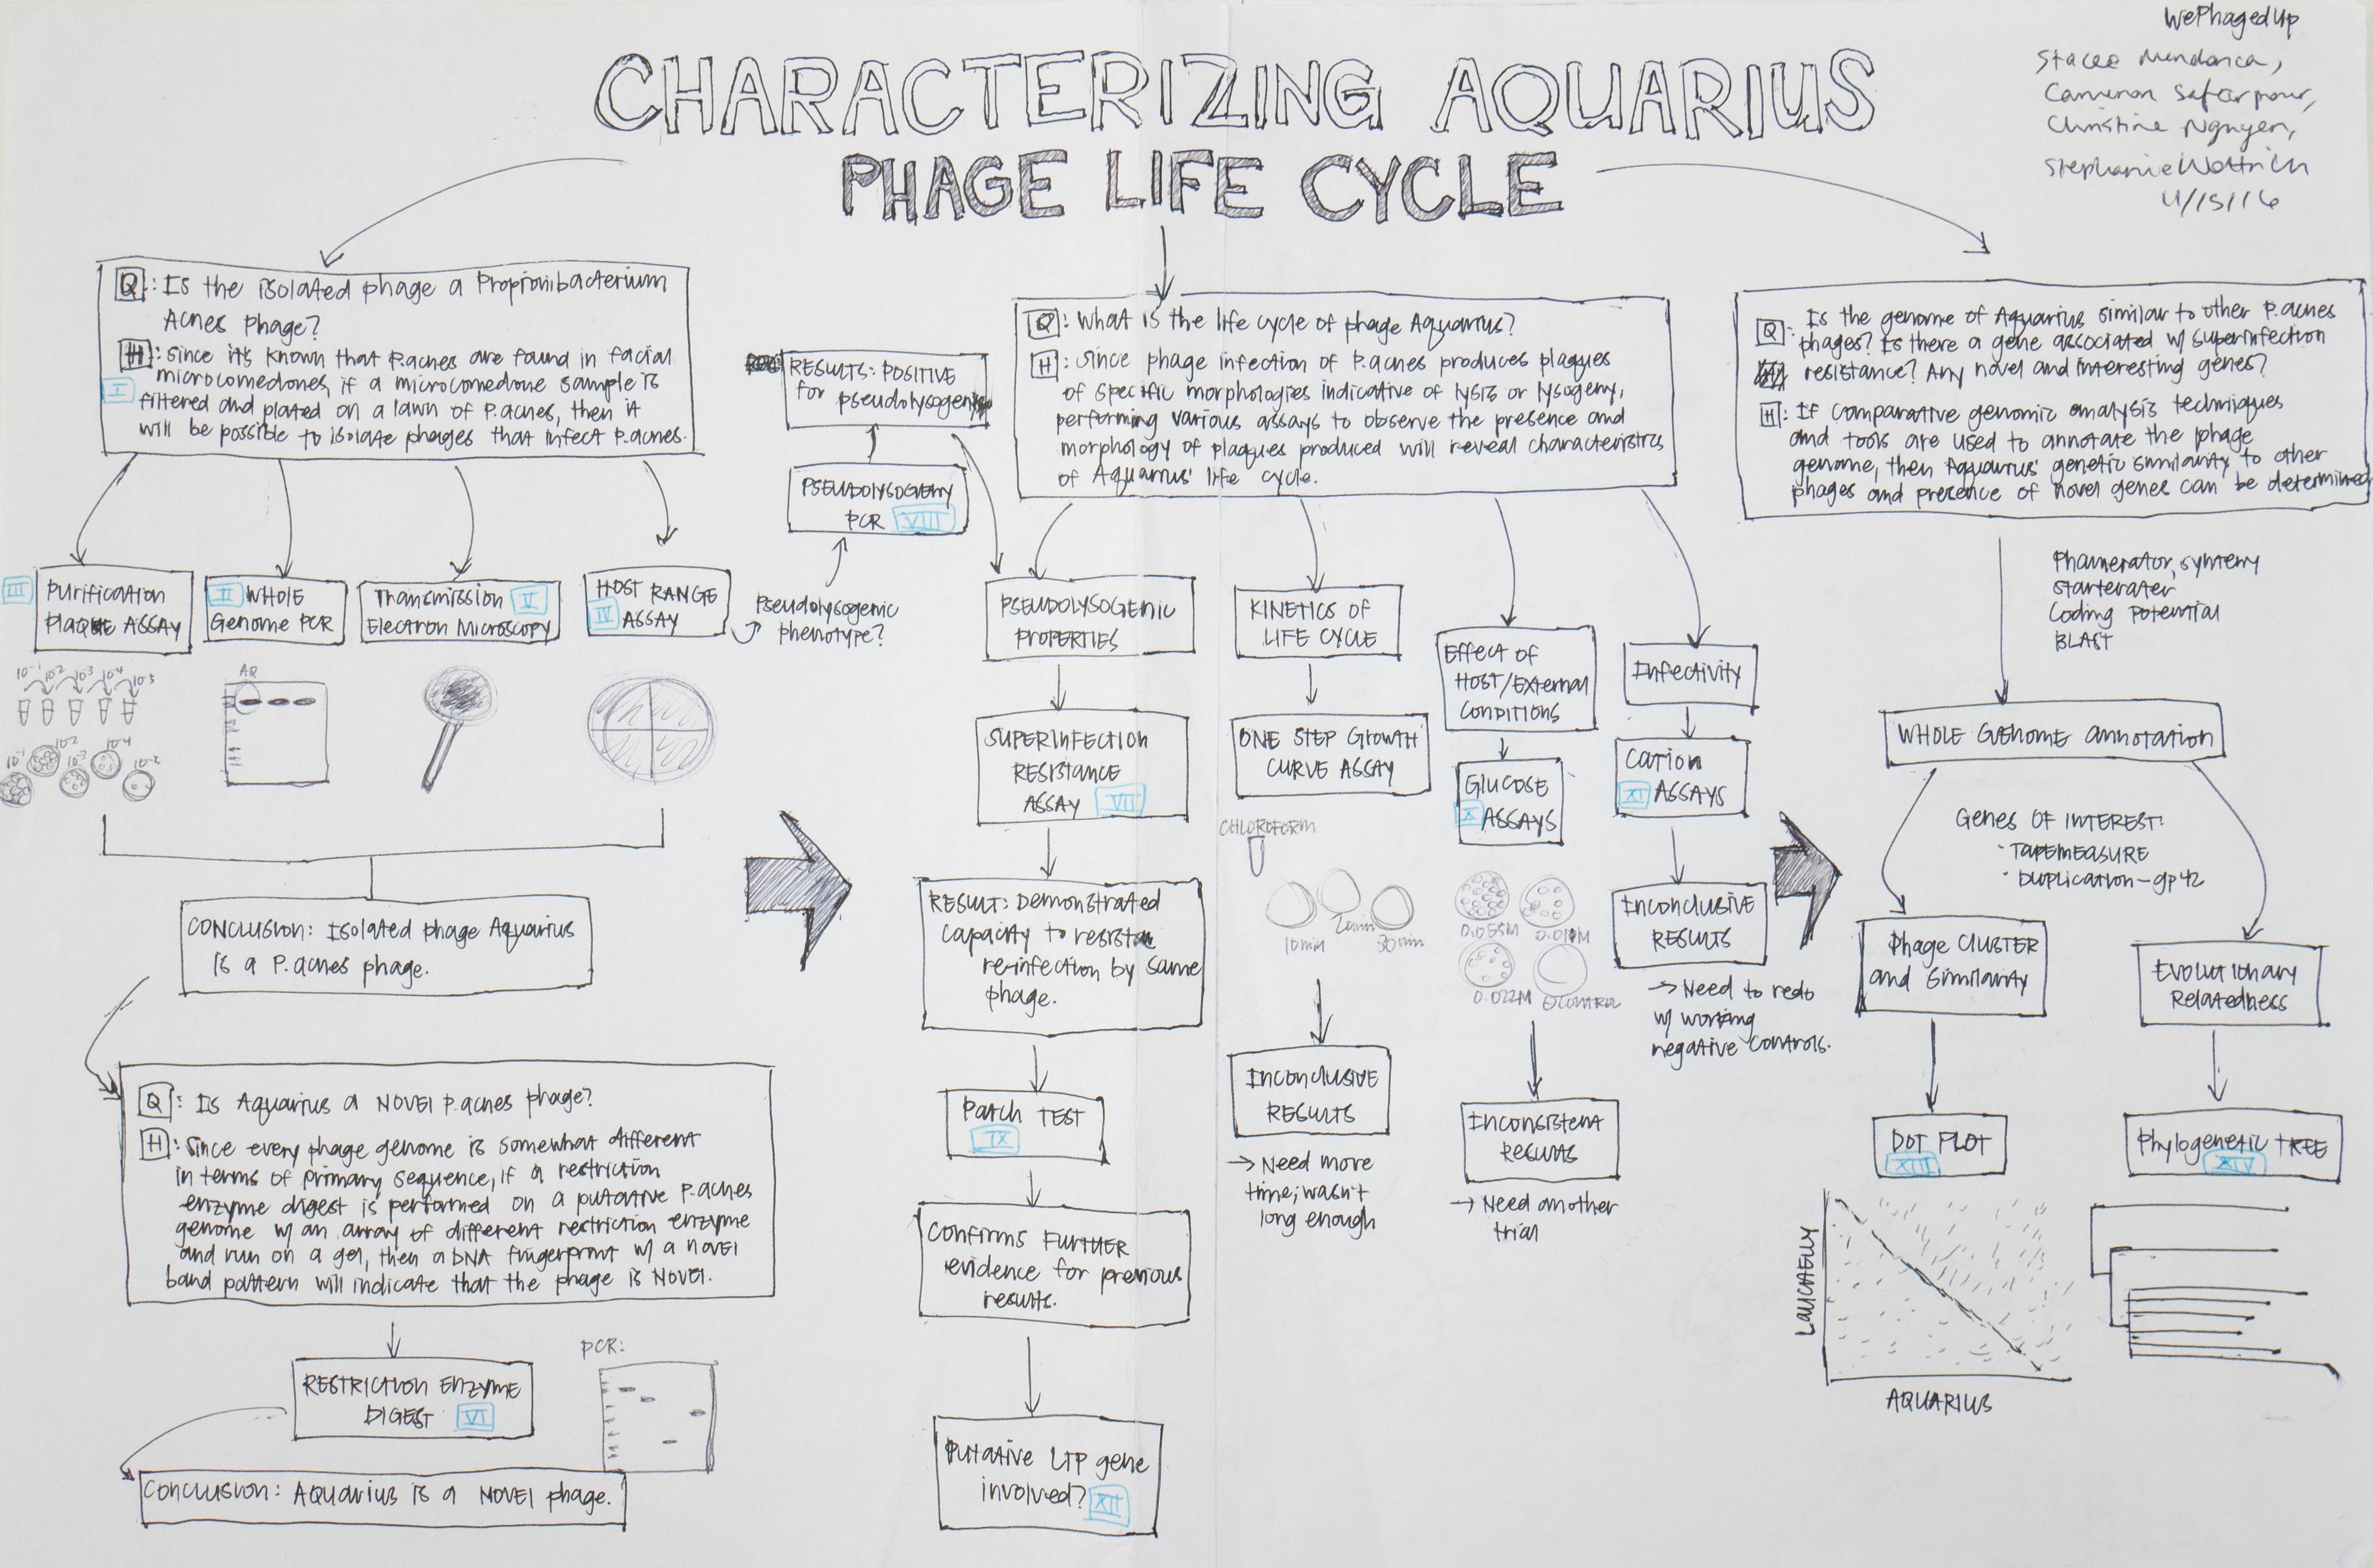 WePhagedUp
Stacee Mendonca,
Cameron Safarpour,
Christine Nguyen,
Stephanie Wottrich
4/15/16
CHARACTERIZING AQUARIUS
PHAGE LIFE CYCLE
Q: Is the isolated phage a Propionibacterium
Acnes Phage?
H: Since it's known that P.acnes are found in facial
microcomedones, if a microcomedone sample is
I
filtered and plated on a lawn of P.acnes, then it
will be possible to isolate phages that infect P.acnes.
III
Purification
Plaque ASSAY
II WHOLE
Genome PCR
Transmission V
Electron Microscopy
HOST RANGE
IV ASSAY
Pseudolysogenic
phenotype?
PSEUDOLYSOGENY
PCR VIII
RESULTS: POSITIVE
for pseudolysogeny
10-1 10-2 10-3 10-4 10-5
10-1 10-2 10-3 10-4 10-2
AQ
CONCLUSION: Isolated phage Aquarius
is a P.acnes phage.
Q: Is Aquarius a NOVEl P.acnes phage?
H: Since every phage genome is somewhat different
in terms of primary sequence, if a restriction
enzyme digest is performed on a putative P.acnes
genome w/ an array of different restriction enzyme
and run on a gel, then a DNA fingerprint w/ a novel
band pattern will indicate that the phage is NOVEl.
RESTRICTION ENZYME
DIGEST VI
PCR:
Conclusion: AQUARIUS is a NOVEl phage.
Q: What is the life cycle of phage Aquarius?
H: Since phage infection of P.acnes produces plaques
of specific morphologies indicative of lysis or lysogeny,
performing various assays to observe the presence and
morphology of plaques produced will reveal characteristics
of Aquarius' life cycle.
PSEUDOLYSOGENIC
PROPERTIES
SUPERINFECTION
RESISTANCE
ASSAY VII
RESULT: Demonstrated
capacity to resist
re-infection by same
phage.
Patch TEST
IX
Confirms FURTHER
evidence for previous
results.
Putative LTP gene
involved? XII
KINETICS OF
LIFE CYCLE
ONE STEP GROWTH
CURVE ASSAY
CHLOROFORM
10min 20min 30min
INCONCLUSIVE
RESULTS
→ Need more
time; wasn't
long enough
Effect of
HOST/External
CONDITIONS
GLUCOSE
X ASSAYS
0.055M 0.011M
0.022M
Inconsistent
Results
→ Need another
trial
Infectivity
Cation
XI ASSAYS
INCONCLUSIVE
RESULTS
→ Need to redo
w/ working
negative controls.
Q: Is the genome of Aquarius similar to other P.acnes
phages? Is there a gene associated w/ superinfection
resistance? Any novel and interesting genes?
H: If comparative genomic analysis techniques
and tools are used to annotate the phage
genome, then Aquarius' genetic similarity to other
phages and presence of novel genes can be determined
Phamerator, synteny
starterater
Coding Potential
BLAST
WHOLE GENOME annotation
Genes OF INTEREST:
· TAPEMEASURE
· Duplication - gp42
Phage CLUSTER
and similarity
DOT PLOT
XIII
LAUCHELLY
AQUARIUS
Evolutionary
Relatedness
Phylogenetic TREE
XIV